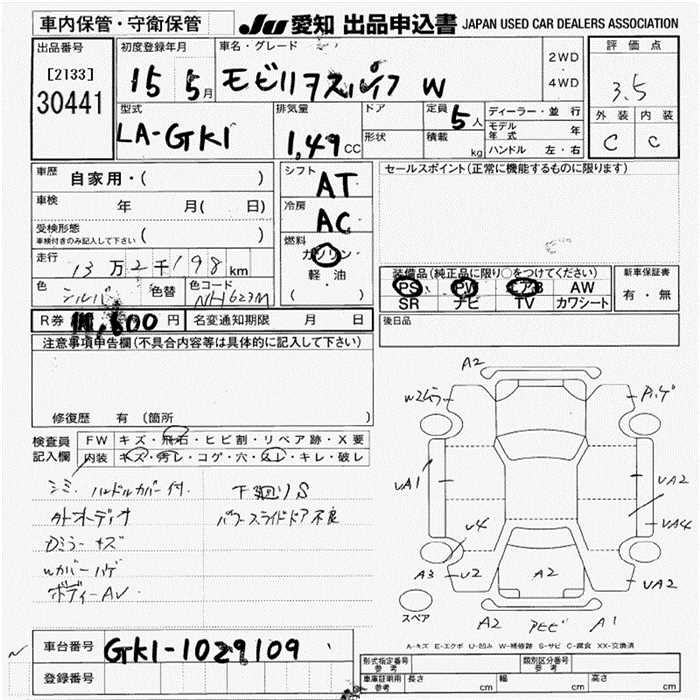 車内保管・守衛保管
JU 愛知 出品申込書 JAPAN USED CAR DEALERS ASSOCIATION
出品番号 [2133] 30441
初度登録年月 15 5月
車名・グレード モビリヲスパイク W
2WD・4WD
評価点 3.5
外装 内装
C C
型式 LA-GK1
排気量 1,49cc
ドア
形状
定員 5人
積載 kg
ディーラー・並行
モデル年式 年
ハンドル 左・右
車歴 自家用・( )
車検 年 月( 日)
受検形態 車検付きのみ記入して下さい ( )
走行 13万2千198km
色 シルバ 色替 色コード NH623M
シフト AT
冷房 AC
燃料 ガソリン
軽・油
( )
セールスポイント(正常に機能するものに限ります)
装備品(純正品に限り○をつけてください)
PS PW エアB AW
SR ナビ TV カワシート
新車保証書
有・無
R券 円
名変通知期限 月 日
後日品
注意事項申告欄(不具合内容等は具体的に記入して下さい)
修復歴 有(箇所
検査員記入欄
FW キズ・飛石・ヒビ割・リペア跡・X要
内装 キズ・汚レ・コゲ・穴・スレ・キレ・破レ
シミ ハンドルカバー付. 下廻りS
外オーディオ パワースライドドア不良
Dミラーキズ
Wカバーハゲ
ボディーAU
A2
UA1
UA2
UA4
U4
A3
U2
A2
UA2
スペア
A2
A1
A-キズ E-エクボ U-凹み W-補修跡 S-サビ C-腐食 XX-交換済
車台番号 GK1-1029109
登録番号
形式指定番号 参考
類別区分番号 参考
車庫証明用 参考 長さ cm 幅 cm 高さ cm